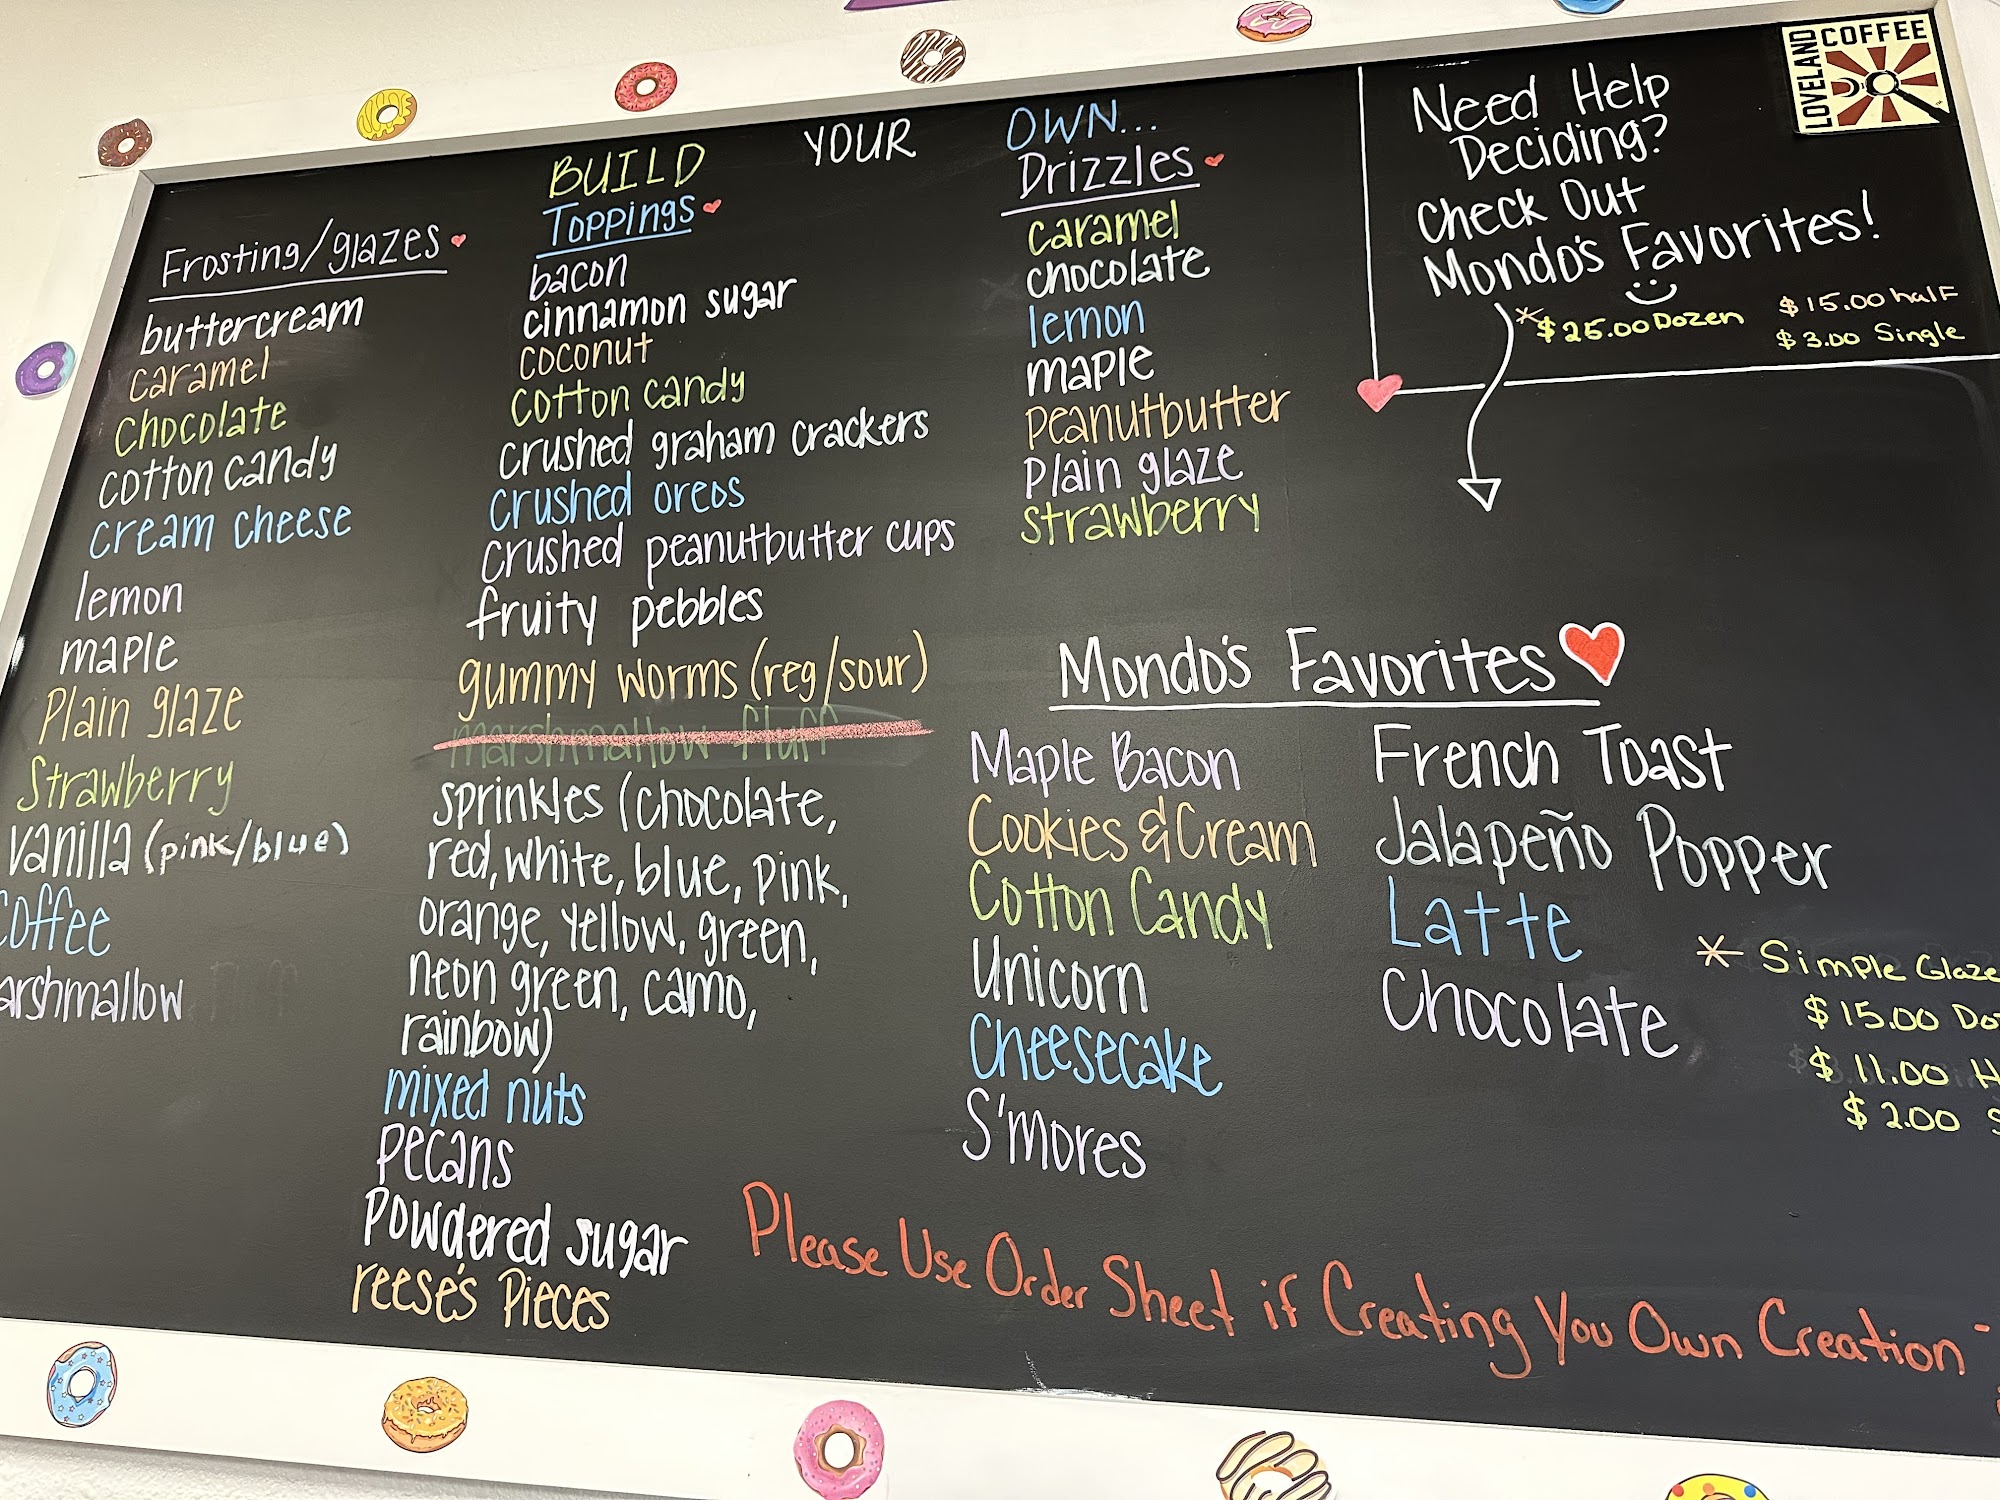 BUILD YOUR OWN...
Frosting/glazes
buttercream
caramel
chocolate
cotton candy
cream cheese
lemon
maple
Plain glaze
Strawberry
vanilla (pink/blue)
coffee
arshmallow
Toppings
bacon
cinnamon sugar
coconut
cotton candy
crushed graham crackers
crushed oreos
crushed peanutbutter cups
fruity pebbles
gummy worms (reg/sour)
marshmallow fluff
sprinkles (chocolate,
red, white, blue, pink,
orange, yellow, green,
neon green, camo,
rainbow)
mixed nuts
pecans
Powdered sugar
reese's Pieces
Drizzles
caramel
chocolate
lemon
maple
peanutbutter
Plain glaze
strawberry
Need Help
Deciding?
Check Out
Mondo's Favorites!
*$25.00 Dozen
$15.00 half
$3.00 Single
LOVELAND
COFFEE
Mondo's Favorites
Maple Bacon
Cookies & Cream
Cotton Candy
Unicorn
Cheesecake
S'mores
French Toast
Jalapeño Popper
Latte
Chocolate
* Simple Glaze
$15.00 Do
$11.00 H
$2.00 S
Please Use Order Sheet if Creating You Own Creation -